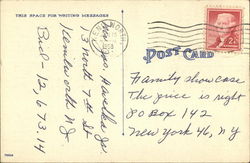 THIS SPACE FOR WRITING MESSAGES
POST CARD
Mrs Jos. Havelka Jr.
13 North 7th St
Kenilworth N.J.
Bid-12,673.14
Family showcase
The price is right
80 Box 142
New York 46, N.Y.